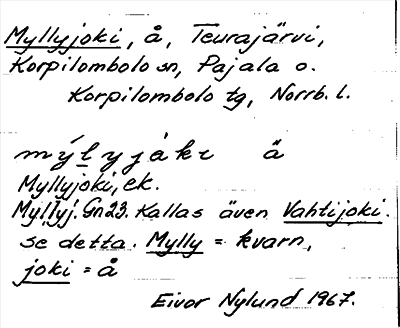 Myllyjoki, å, Teurajärvi,
Korpilombolo sn, Pajala o.
Korpilombolo tg, Norrb. l.
mýlyjåkı ä
Myllyjoki, ek.
Myllyj. Gn23. Kallas även Vahtijoki.
se detta. Mylly = kvarn,
joki = å
Eivor Nylund 1967.